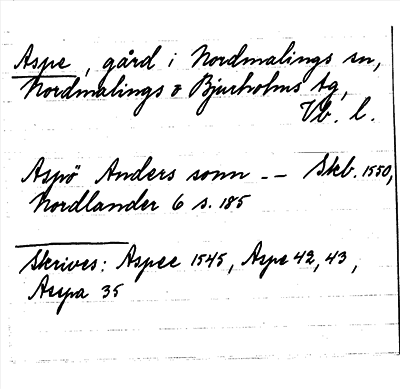 Aspe, gård i Nordmalings sn,
Nordmalings o Bjurholms tg,
Vb. l.
Aspö Anders sonn -- Skb. 1550,
Nordlander 6 s. 185
Skrives: Aspee 1545, Aspe 42, 43,
Asspa 35